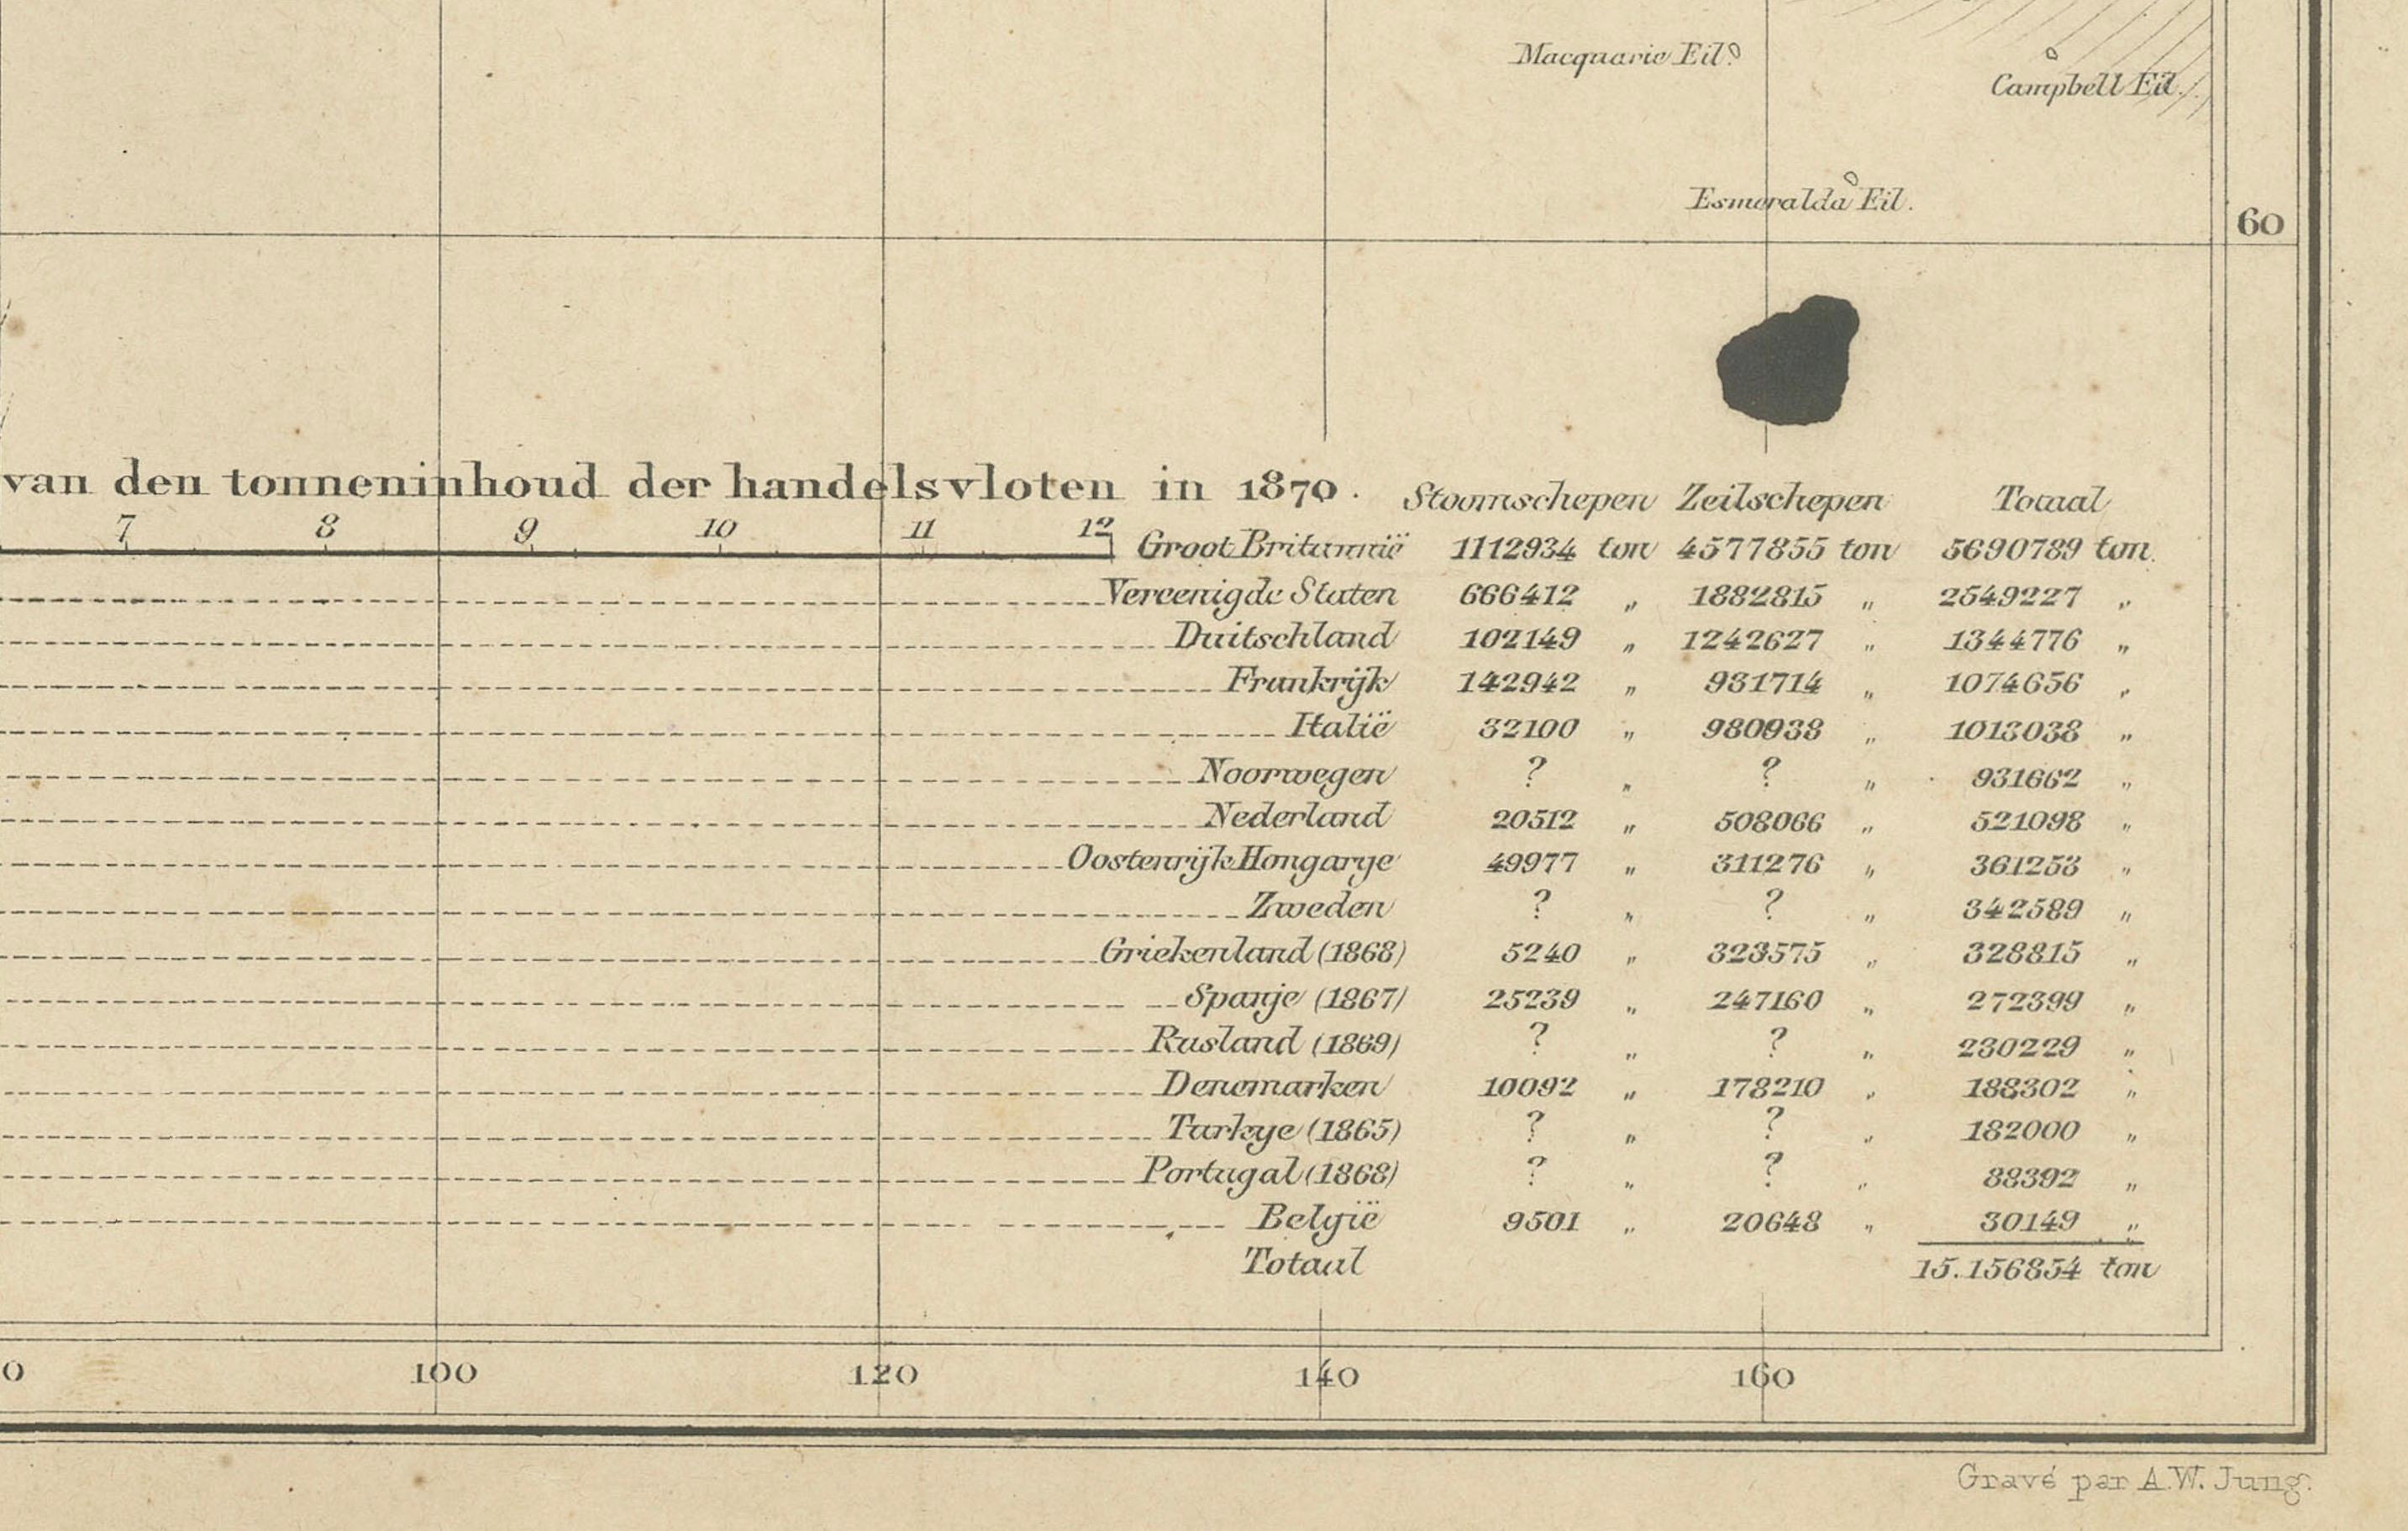 Macquarie Eil.
Campbell Eil.
Esmeralda Eil.
60
van den tonneninhoud der handelsvloten in 1870.
7 8 9 10 11 12
Stoomschepen Zeilschepen Totaal
Groot Britannië 1112934 ton 4577855 ton 5690789 ton.
Vereenigde Staten 666412 „ 1882815 „ 2549227 „
Duitschland 102149 „ 1242627 „ 1344776 „
Frankrijk 142942 „ 931714 „ 1074656 „
Italië 32100 „ 980938 „ 1013038 „
Noorwegen ? „ ? „ 931662 „
Nederland 20512 „ 508066 „ 521098 „
Oostenrijk Hongarye 49977 „ 311276 „ 361253 „
Zweden ? „ ? „ 342589 „
Griekenland (1868) 5240 „ 323575 „ 328815 „
Spanje (1867) 25239 „ 247160 „ 272399 „
Rusland (1869) ? „ ? „ 230229 „
Denemarken 10092 „ 178210 „ 188302 „
Turkye (1865) ? „ ? „ 182000 „
Portugal (1868) ? „ ? „ 88392 „
België 9501 „ 20648 „ 30149 „
Totaal 15.156854 ton
0 100 120 140 160
Gravé par A.W. Jung.